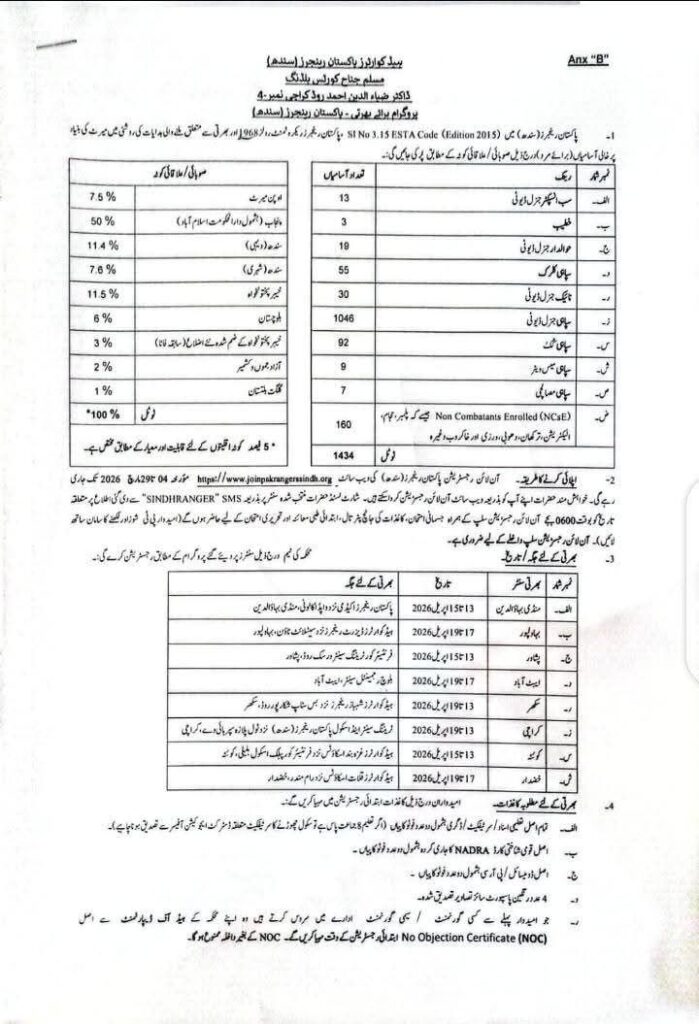 Anx "B"
ہیڈکوارٹرز پاکستان رینجرز (سندھ)
مسلم جناح کورٹس بلڈنگ
ڈاکٹر ضیاء الدین احمد روڈ کراچی نمبر-4
پروگرام برائے بھرتی - پاکستان رینجرز (سندھ)
1۔ پاکستان رینجرز (سندھ) میں SI No 3.15 ESTA Code (Edition 2015)، پاکستان رینجرز ریکروٹمنٹ رولز 1968 اور بھرتی سے متعلق ملنے والی ہدایات کی روشنی میں میرٹ کی بنیاد
پر خالی آسامیاں (برائے مرد) درج ذیل صوبائی / علاقائی کوٹہ کے مطابق پُر کی جائیں گی:۔
نمبر شمار رینک تعداد آسامیاں
الف۔ سب انسپکٹر جنرل ڈیوٹی 13
ب۔ خطیب 3
ج۔ حوالدار جنرل ڈیوٹی 19
د۔ سپاہی کلرک 55
ر۔ نائیک جنرل ڈیوٹی 30
ز۔ سپاہی جنرل ڈیوٹی 1046
س۔ سپاہی کک 92
ش۔ سپاہی میس ویٹر 9
ص۔ سپاہی مصالچی 7
ض۔ Non Combatants Enrolled (NCsE) جیسے کہ پلمبر، حجام،
الیکٹریشن، ترکھان، دھوبی، درزی اور خاکروب وغیرہ 160
ٹوٹل 1434
صوبائی / علاقائی کوٹہ
اوپن میرٹ 7.5 %
پنجاب (بشمول دارالحکومت اسلام آباد) 50 %
سندھ (دیہی) 11.4 %
سندھ (شہری) 7.6 %
خیبر پختونخواہ 11.5 %
بلوچستان 6 %
خیبر پختونخواہ کے ضم شدہ نئے اضلاع (سابقہ فاٹا) 3 %
آزاد جموں و کشمیر 2 %
گلگت بلتستان 1 %
ٹوٹل 100 %*
* 5 فیصد کوٹہ اقلیتوں کے لئے قابلیت اور معیار کے مطابق مختص ہے۔
2۔ اپلائی کرنے کا طریقہ۔ آن لائن رجسٹریشن پاکستان رینجرز (سندھ) کی ویب سائٹ https://www.joinpakrangerssindh.org مؤرخہ 04 تا 29 مارچ 2026 تک جاری
رہے گی۔ خواہش مند حضرات اپنے آپ کو بذریعہ ویب سائٹ آن لائن رجسٹریشن کروا سکتے ہیں۔ شارٹ لسٹڈ حضرات منتخب شدہ سنٹر پر بذریعہ SMS "SINDHRANGER" سے دی گئی اطلاع پر متعلقہ
تاریخ کو بوقت 0600 بجے آن لائن رجسٹریشن سلپ کے ہمراہ جسمانی امتحان، کاغذات کی جانچ پڑتال، ابتدائی طبی معائنہ اور تحریری امتحان کے لیے حاضر ہوں گے (امیدوار پی ٹی شوز اور لکھنے کا سامان ساتھ
لائیں)۔ آن لائن رجسٹریشن سلپ داخلے کے لیے ضروری ہے۔
3۔ بھرتی کے لئے جگہ / تاریخ۔ محکمہ کی ٹیم درج ذیل سنٹرز پر دیئے گئے پروگرام کے مطابق رجسٹریشن کرے گی:۔
نمبر شمار بھرتی سنٹر تاریخ بھرتی کے لئے جگہ
الف۔ منڈی بہاؤالدین 13 تا 15 اپریل 2026 پاکستان رینجرز اکیڈمی نزد واپڈا کالونی، منڈی بہاؤالدین
ب۔ بہاولپور 17 تا 19 اپریل 2026 ہیڈ کوارٹرز ڈیزرٹ رینجرز نزد سیٹلائٹ ٹاؤن، بہاولپور
ج۔ پشاور 13 تا 15 اپریل 2026 فرنٹیئر کور ٹریننگ سینٹر ورسک روڈ، پشاور
د۔ ایبٹ آباد 17 تا 19 اپریل 2026 بلوچ رجمینٹل سینٹر، ایبٹ آباد
ر۔ سکھر 13 تا 19 اپریل 2026 ہیڈ کوارٹرز شہباز رینجرز نزد بس سٹاپ شکارپور روڈ، سکھر
ز۔ کراچی 13 تا 19 اپریل 2026 ٹریننگ سینٹر اینڈ اسکول پاکستان رینجرز (سندھ) نزد ٹول پلازہ سپر ہائی وے، کراچی
س۔ کوئٹہ 13 تا 15 اپریل 2026 ہیڈ کوارٹرز غزہ بند اسکاؤٹس نزد فرنٹیئر کور پبلک اسکول بلیلی، کوئٹہ
ش۔ خضدار 17 تا 19 اپریل 2026 ہیڈ کوارٹرز قلات اسکاؤٹس نزد رام مندر، خضدار
4۔ بھرتی کے لئے مطلوبہ کاغذات۔ امیدواران درج ذیل کاغذات ابتدائی رجسٹریشن میں مہیا کریں گے:۔
الف۔ تمام اصل تعلیمی اسناد / سرٹیفکیٹ / ڈگری بشمول دو عدد فوٹو کاپیاں (اگر تعلیم 8 جماعت پاس ہے تو سکول چھوڑنے کا سرٹیفکیٹ متعلقہ ڈسٹرکٹ ایجوکیشن آفیسر سے تصدیق ہونا چاہیے)۔
ب۔ اصل قومی شناختی کارڈ NADRA کا جاری کردہ بشمول دو عدد فوٹو کاپیاں۔
ج۔ اصل ڈومیسائل / پی آر سی بشمول دو عدد فوٹو کاپیاں۔
د۔ 4 عدد رنگین پاسپورٹ سائز تصاویر تصدیق شدہ۔
ر۔ جو امیدوار پہلے سے کسی گورنمنٹ / سیمی گورنمنٹ ادارے میں سروس کرتے ہیں وہ اپنے محکمہ کے ہیڈ آف ڈیپارٹمنٹ سے اصل
No Objection Certificate (NOC) ابتدائی رجسٹریشن کے وقت مہیا کریں گے۔ NOC کے بغیر داخلہ ممنوع ہوگا۔